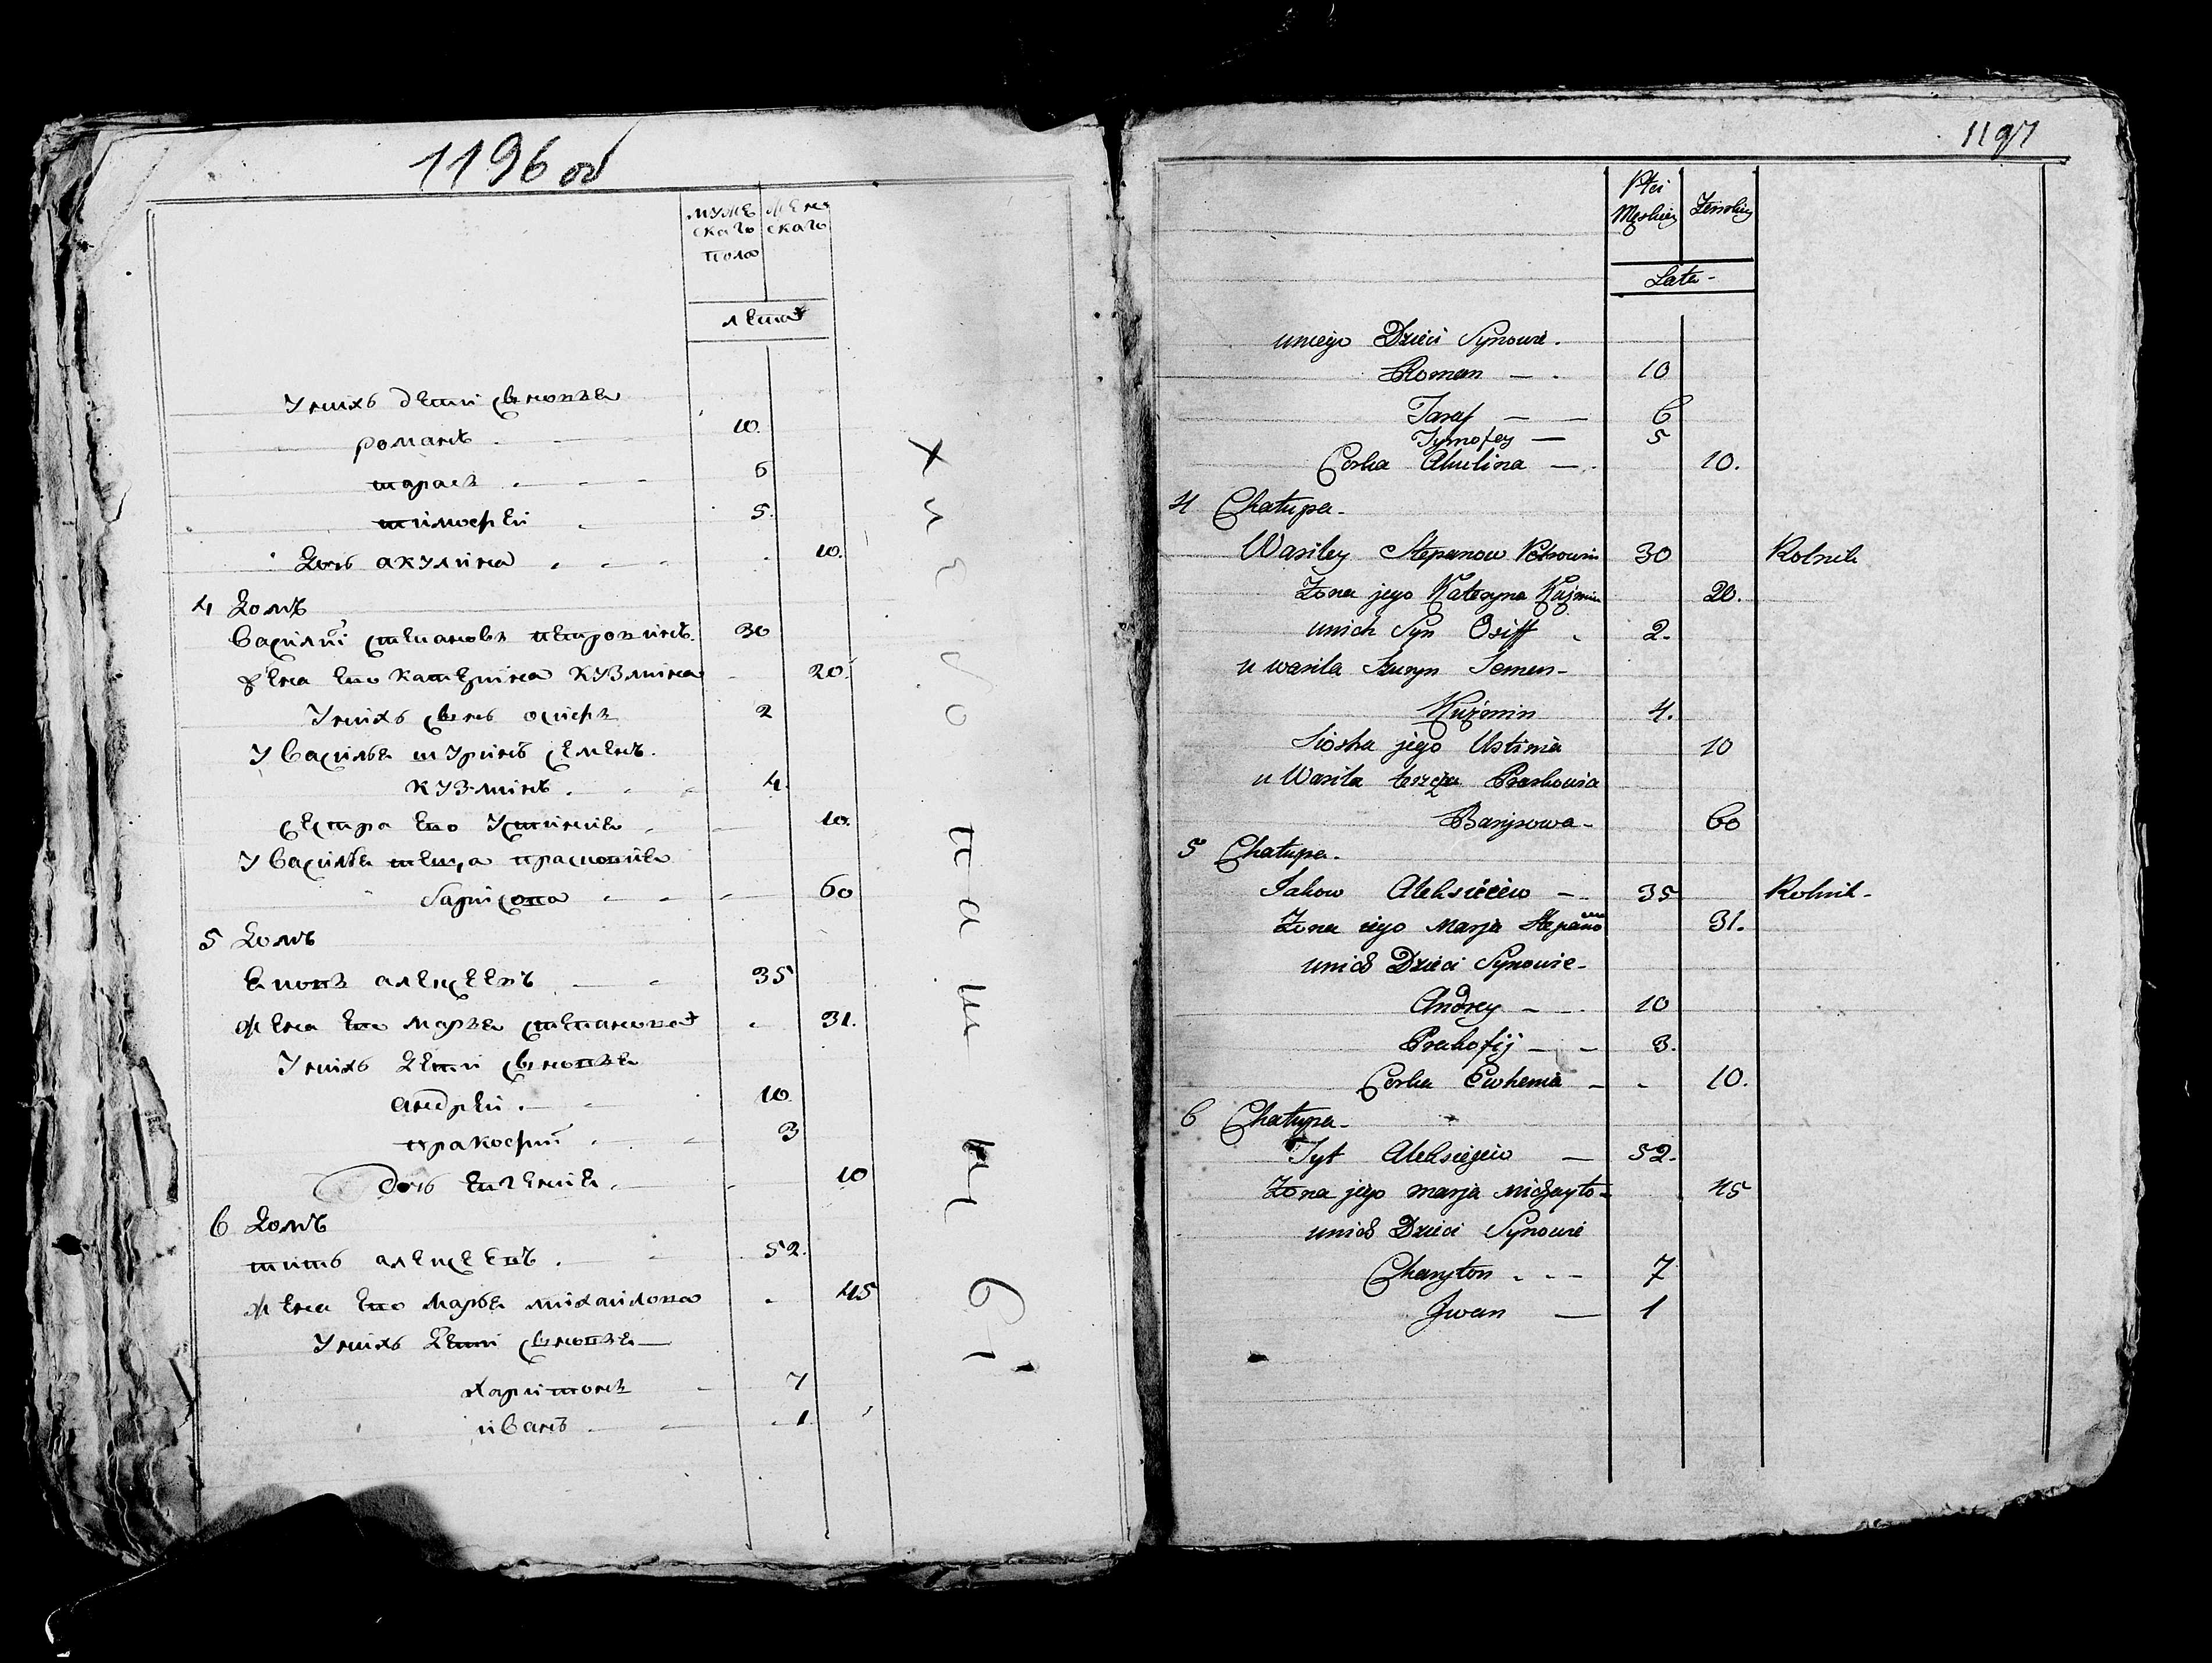 1196 об
муже женс
скаго скаго
пола
лета
У нихъ дети сыновья
романъ 10.
тарасъ 6
тимофеи 5.
Дочь акулина 10.
4 Домъ
Василиі степановъ петровинъ. 30
жена ево катерина кузмина 20.
У нихъ сынъ осифъ 2
У василья шуринъ семенъ.
кузминъ. 4.
сестра ево устиния 10.
У василья теща прасковия
барисова 60
5 Домъ
яковъ алексеевъ 35
жена ево марья степанова 31.
У нихъ дети сыновья
андреи. 10.
пракофиі 3
дочь евгения. 10
6 Домъ
титъ алексеевъ. 52.
жена ево марья михаилова 45
У нихъ дети сыновья
харитонъ 7
иванъ 1.
хлебопашцы
1197
Płci
Męskiey Żenskiey
Lata
uniego Dzieci Synowie.
Roman 10
Taras 6
Tymofey 5
Corka Akulina 10.
4 Chałupa
Wasiley Stepanow Petrowin 30 Rolnik
Żona jego Kateryna Kuzmin 20.
unich Syn Osiff 2.
u wasila Szuryn Semen
Kuźmin 4.
Siostra jego Ustinia 10
u Wasila teszcza Praskowia
Barysowa 60
5 Chałupa.
Jakow Aleksieiew 35 Rolnik
Żona iego Marja Stepano 31.
unich Dzieci Synowie
Andrey 10
Prakofij 3.
Corka Ewhenia 10.
6 Chałupa
Tyt Aleksiejew 52.
Żona jego marja michayło 45
unich Dzieci Synowie
Charyton 7
Jwan 1